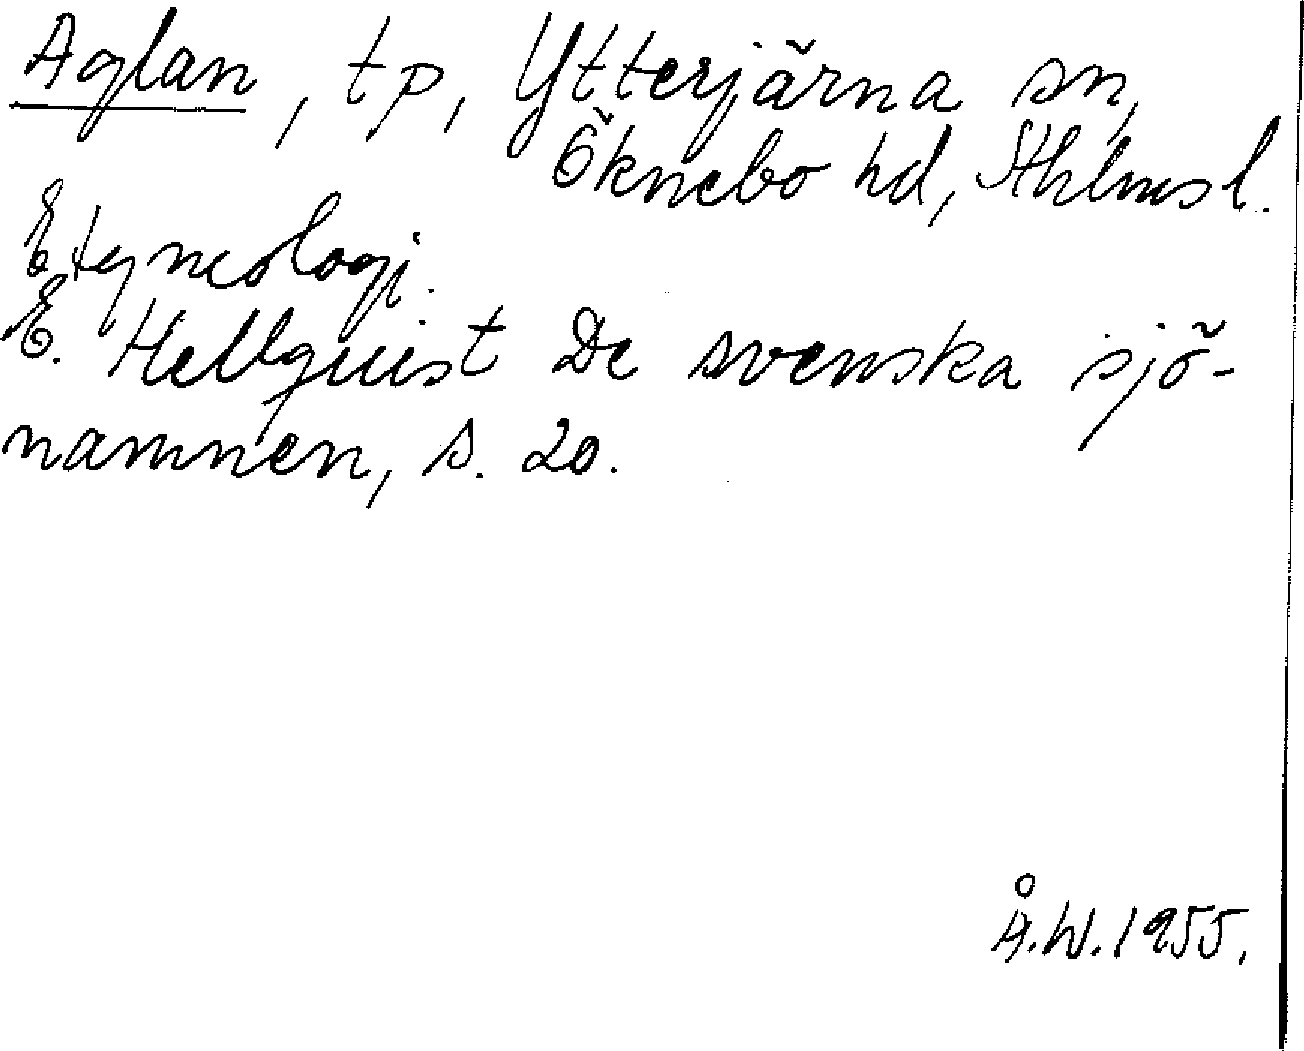 Aglan, tp, Ytterjärna sn,
Öknebo hd, Sthlms l.
Etymologi.
E. Hellquist De svenska sjö-
namnen, s. 20.
Å.W. 1955.